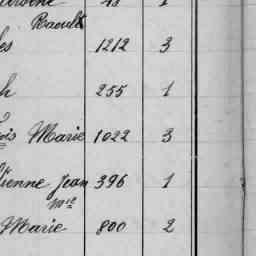 Raoul
es 1212 3
h 255 1
ois Marie 1022 3
ienne Jean 396 1
Mie
Marie 800 2